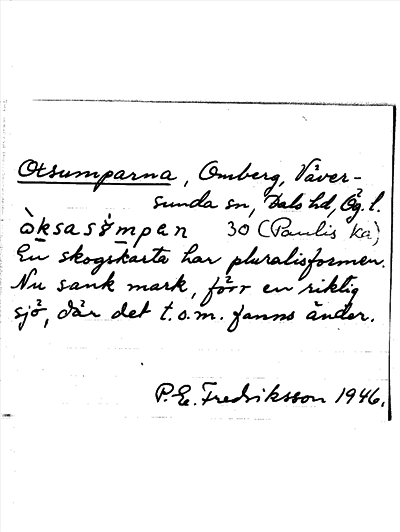 Otsumparna, Omberg, Väver-
sunda sn, Dals hd, Ög. l.
òksass̀mpan 30 (Paulis ka)
En skogskarta har pluralisformen.
Nu sank mark, förr en riktig
sjö, där det t.o.m. fanns änder.
P. E. Fredriksson 1946.